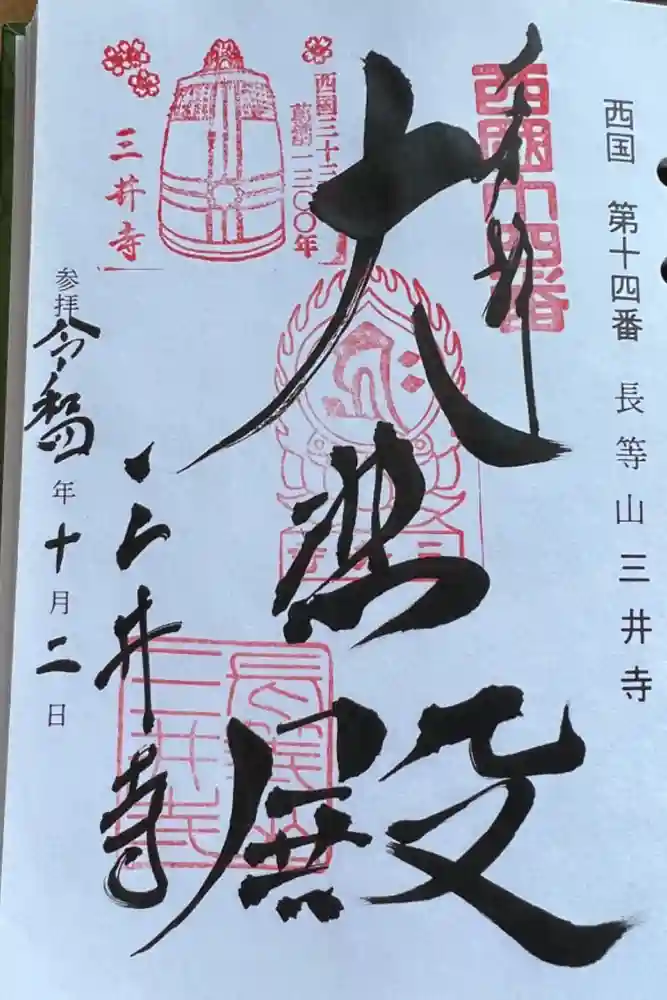 西国 第十四番 長等山 三井寺
西国十四番
奉拝
大悲殿
西国三十三
草創一三〇〇年
三井寺
三井寺
三井寺
参拝 令和四年十月二日